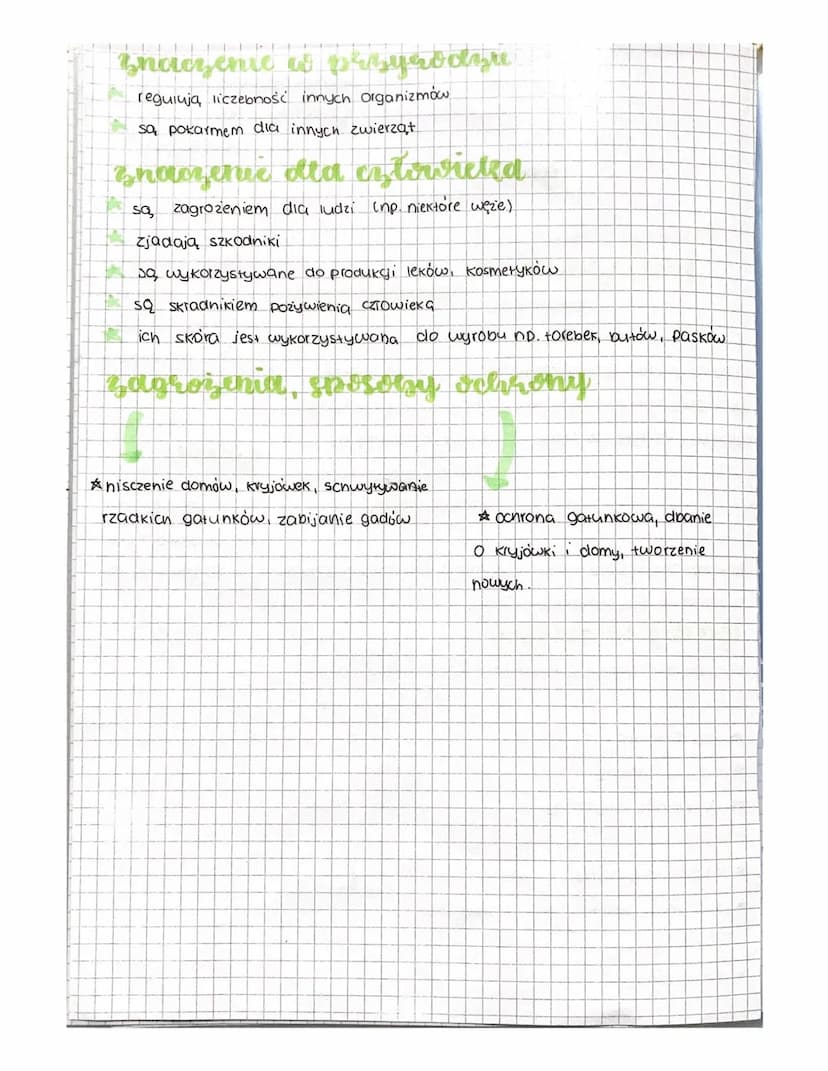 znaczenie w przyrodzie
regulują liczebność innych organizmów
są pokarmem dla innych zwierząt
znaczenie dla człowieka
są zagrożeniem dla ludzi (np. niektóre węże)
zjadają szkodniki
są wykorzystywane do produkcji leków, kosmetyków
są składnikiem pożywienia człowieka
ich skóra jest wykorzystywana do wyrobu np. torebek, butów, pasków
zagrożenia, sposoby ochrony
nisczenie domów, kryjówek, schwytywanie
rzadkich gatunków, zabijanie gadów
ochrona gatunkowa, dbanie
o kryjówki i domy, tworzenie
nowych.